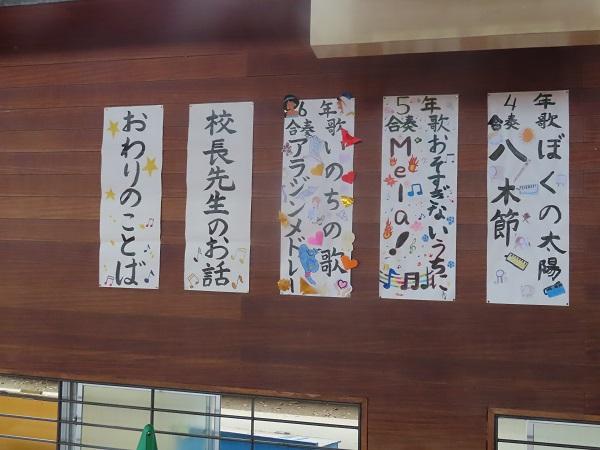 4年歌ぼくの太陽
合奏八木節
5年歌おそすぎないうちに
合奏Mela!
6年歌いのちの歌
合奏アラジンメドレー
校長先生のお話
おわりのことば